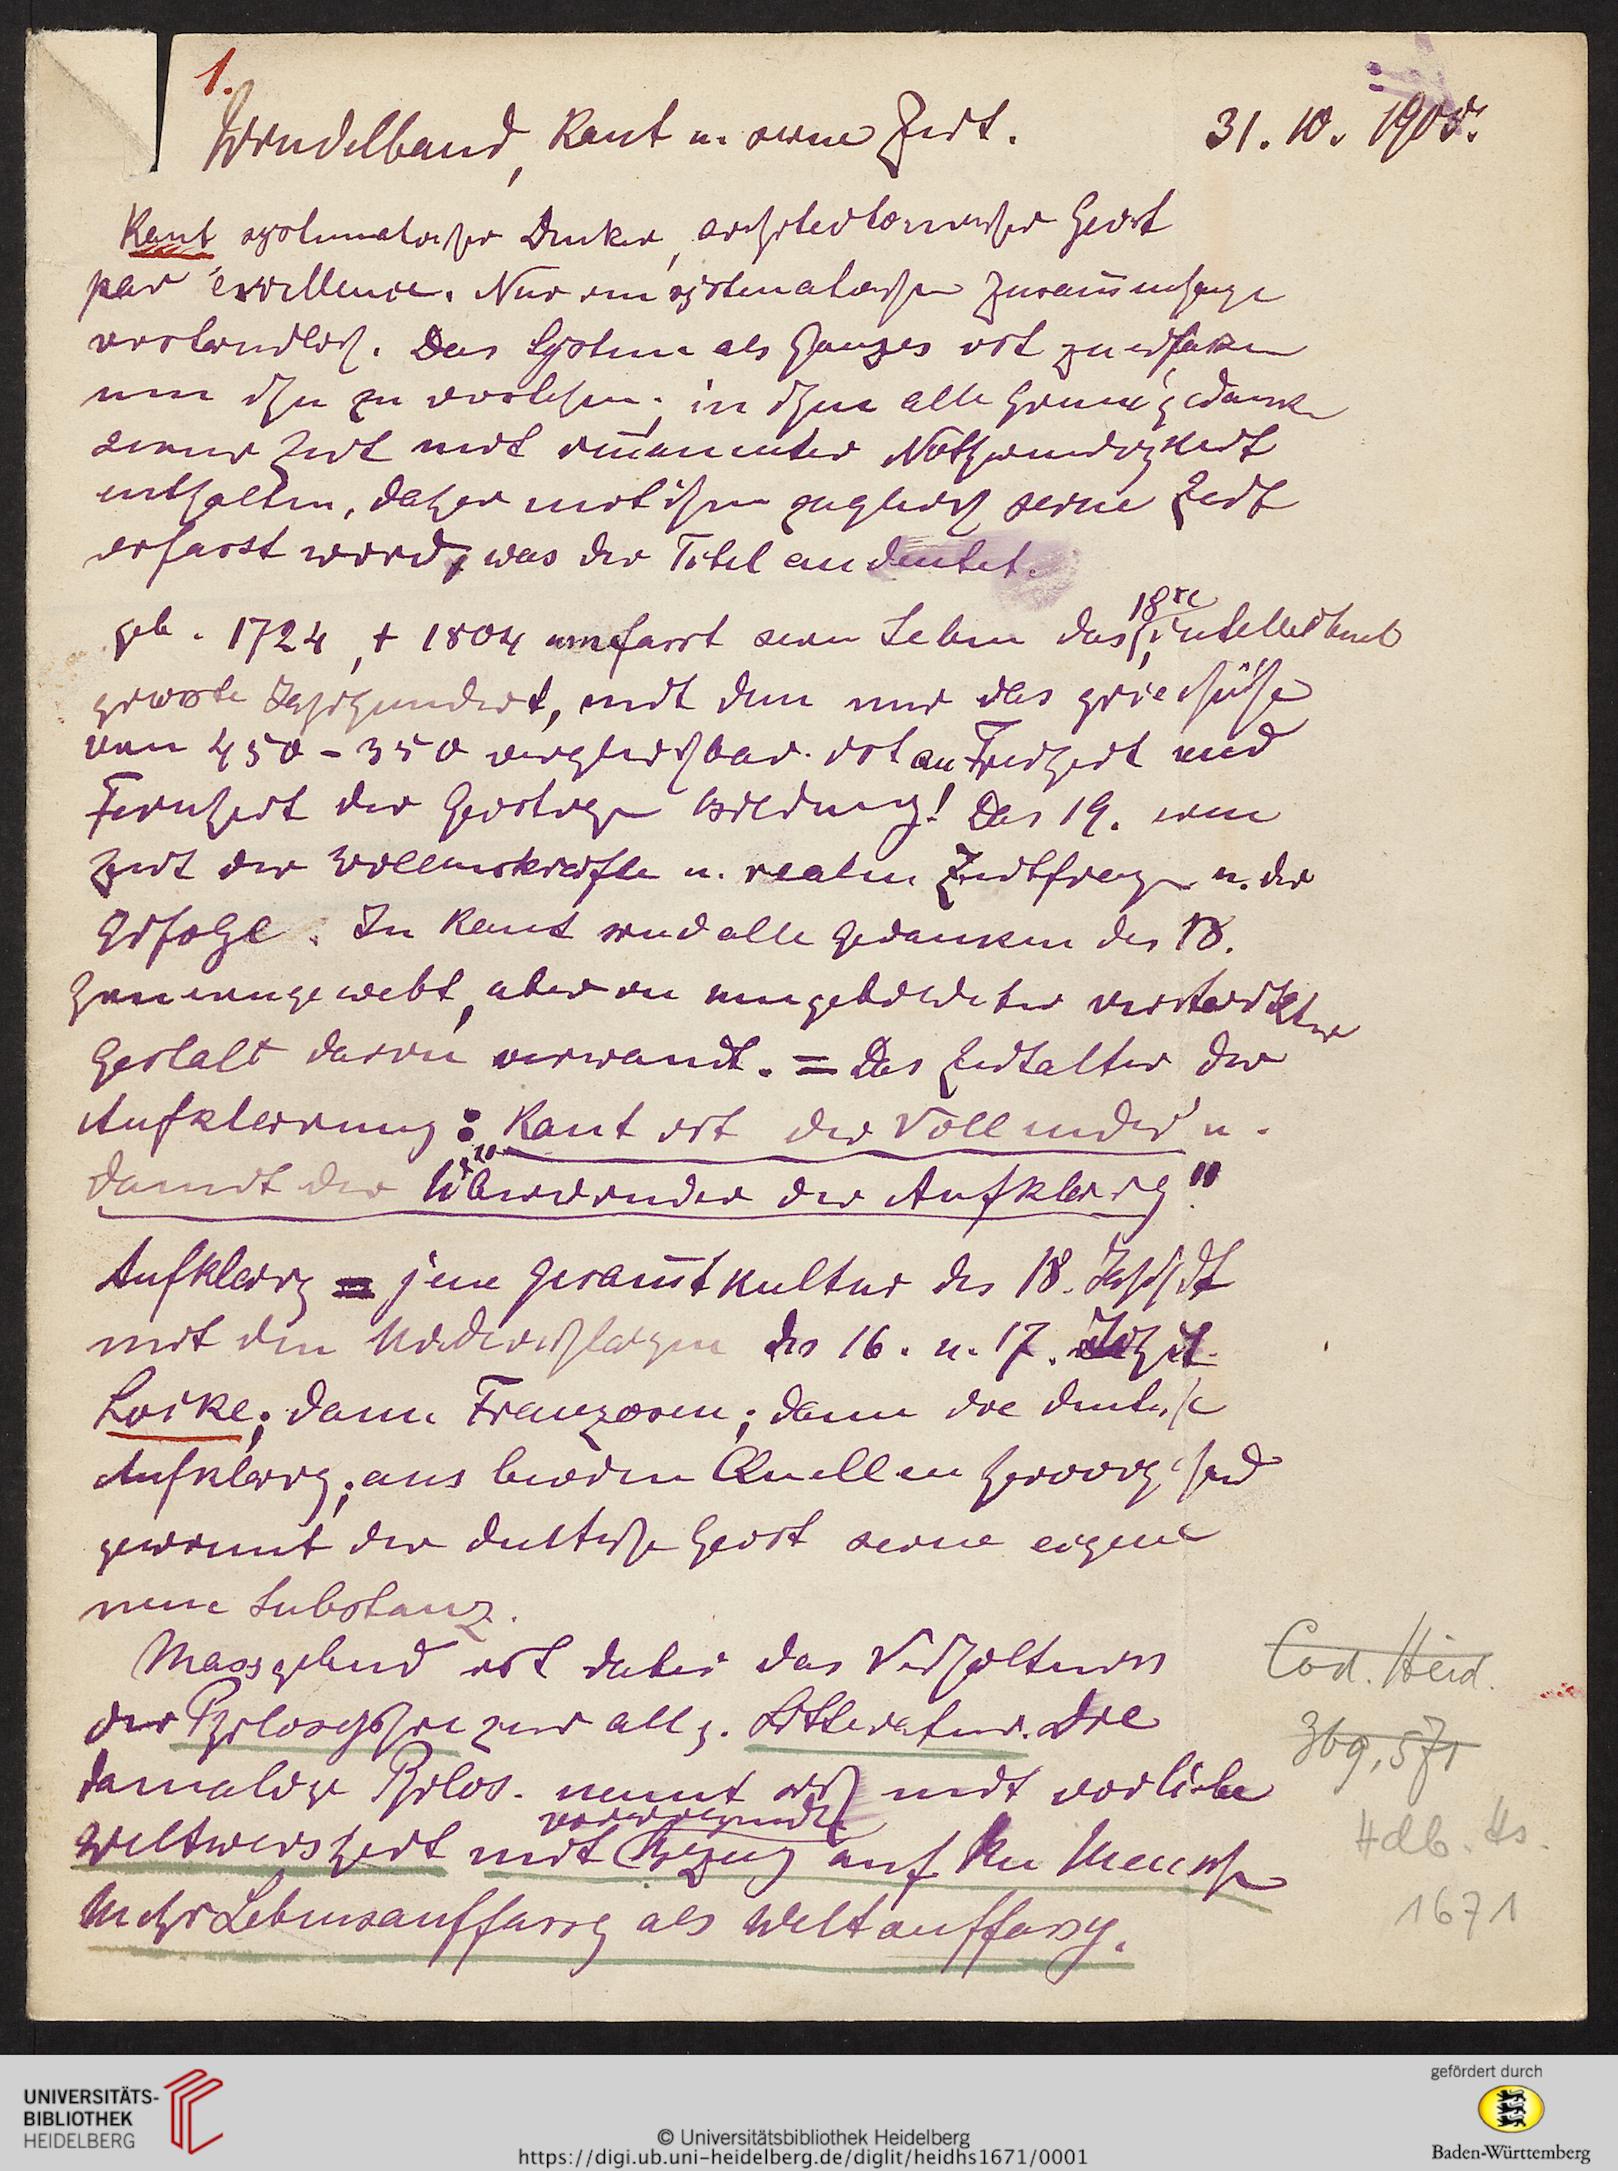 1.
Windelband, Kant u. seine Zeit. 31. 10. 1905.
Kant systematischer Denker, architektonischer Geist
par excellence. Nur im systematischen Zusam̅enhange
verständlich. Das System als Ganzes ist zu erfassen
um ihn zu verstehen; in ihm alle Grundgedanken
seiner Zeit mit im̅anenter Nothwendigkeit
enthalten, daher mit ihm zugleich seine Zeit
erfasst wird, was der Titel andeutet.
geb. 1724, + 1804 umfasst sein Leben das 18te, intellektuell
grösste Jahrhundert, mit dem nur das griechische
von 450 - 350 vergleichbar ist an Freiheit und
Feinheit der geistigen Bildung! Das 19. eine
Zeit der Willenskräfte u. realen Zeitfragen u. der
Erfolge. In Kant sind alle Gedanken des 18.
hineingewebt, aber in umgebildeter verstärkter
Gestalt darin verwandt. = Das Zeitalter der
Aufklärung: Kant ist der Vollender u.
damit der Überwinder der Aufklärg."
Aufklärg = jene Gesam̅tkultur des 18. Jahrhdt
mit den des 16. u. 17. Jhdt.
Locke; dann Franzosen; dann die deutsche
Aufklärg; aus beiden Quellen hervorgehend
gewinnt der deutsche Geist seine eigene
neue Substanz.
Massgebend ist dabei das Verhältniss
der Philosophie zur allg. Litteratur. Die
damalige Philos. nennt sich mit Vorliebe
Weltweisheit mit vorwiegender Bezug auf den Menschen
Mehr Lebensauffassg als Weltauffassg.
Cod. Heid.
369,571
Hdb. Hs.
1671
UNIVERSITÄTS-
BIBLIOTHEK
HEIDELBERG
© Universitätsbibliothek Heidelberg
https://digi.ub.uni-heidelberg.de/diglit/heidhs1671/0001
gefördert durch
Baden-Württemberg